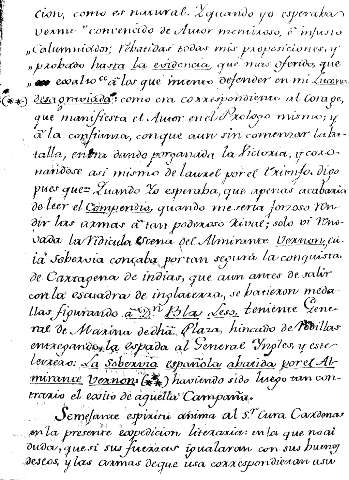 cion, como es natural. Y quando yo esperaba
verme convencido de Autor mentiroso, è injusto
Calumniador; rebatidas todas mis proposiciones, y
probado hasta la evidencia, que mas ofendo, que
exalto à los que intento defender en mi
desagraviada: como era correspondiente al corage,
que manifiesta el Autor en el Prologo mismo; y
à la confianza, con que aun sin comenzar la ba-
talla, entra dando por ganada la Victoria, y coro-
nandose asi mismo de laurel por el triunfo. digo
pues que = Quando Yo esperaba, que apenas acabaria
de leer el Compendio, quando me seria forzoso ren-
dir las armas à tan poderoso Rival; solo vi reno-
vada la ridicula escena del Almirante Vernon, cu-
ia Sobervia contaba por tan segura la conquista
de Cartagena de indias, que aun antes de salir
con la escuadra de inglaterra, se batieron meda-
llas figurando à Dn Blas Leso, teniente Gene-
ral de Marina de dha Plaza, hincado de Rodillas
entregando la espada al General Yngles, y este
letrero: La Sobervia española abatida por el Al-
mirante Vernon: (**) haviendo sido luego tan con-
trario el exito de aquella Campaña.
Semejante espiritu anima al Sr. Cura Cardenas
en la presente expedicion literaria: en la que no ai
duda, que si sus fuerzas igualaran con sus buenos
deseos, y las armas de que usa correspondieran a su